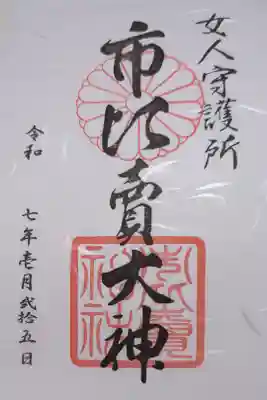 女人守護所
市比賣大神
令和
七年壱月弐拾五日